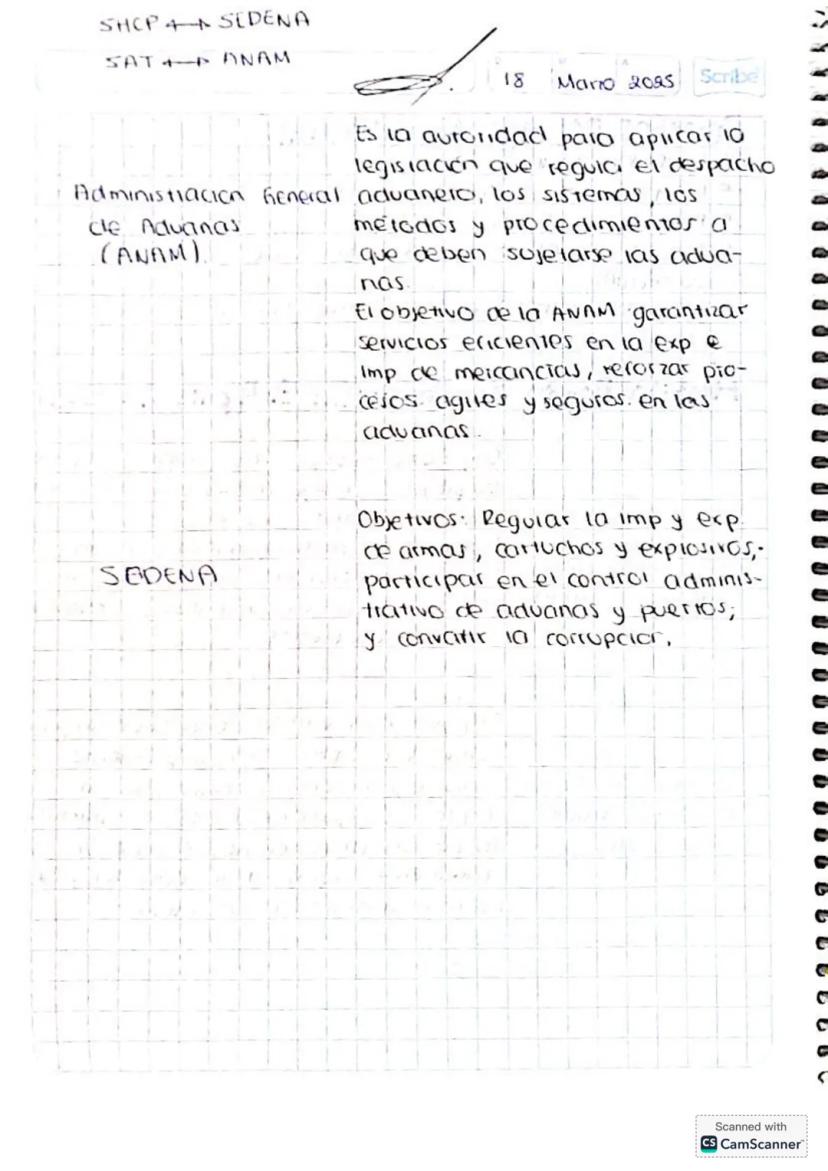 SHCP ↔ SEDENA
SAT ↔ ANAM
18 Marzo 2025 Scribe
Es la autoridad para aplicar la
legislación que regula el despacho
Administración General aduanero, los sistemas, los
de Aduanas métodos y procedimientos a
(ANAM) que deben sujetarse las adua-
nas.
El objetivo de la ANAM garantizar
servicios eficientes en la exp e
Imp de mercancias, reforzar pro-
cesos agiles y seguros en las
aduanas.
Objetivos: Regular la imp y exp.
de armas, cartuchos y explosivos,
SEDENA participar en el control adminis-
trativo de aduanas y puertos;
y convatir la corrupcion.
Scanned with
CS CamScanner